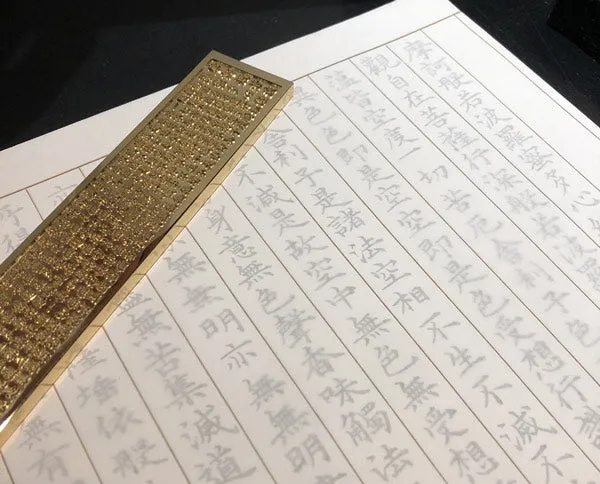 摩訶般若波羅蜜多心
觀自在菩薩行深般若波羅
蘊皆空度一切苦厄舍利子色
異色色即是空空即是色受想行識
舍利子是諸法空相不生不滅不
不減是故空中無色無受想
身意無色聲香味觸法
無無明亦無無明
無苦集滅道
埵依般
無有